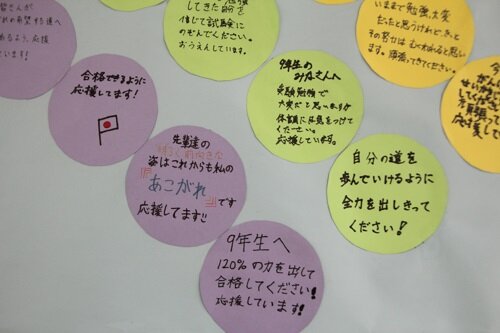 皆さんが
応援
しています
してきた自分を
信じて試験に
のぞんでください。
おうえんしています。
いままで勉強大変
だったと思うけれど、きっと
その努力はむくわれると思い
ます。頑張ってきてください。
合格できるように
応援してます!
9年生の
みなさんへ
受験勉強で
大変だと思いますが
体調に気をつけて
ください。
応援しています。
先輩達の
姿はこれからも私の
『あこがれ』です
応援してます!!
自分の道を
歩んでいけるように
全力を出しきって
ください!
9年生へ
120%の力を出して
合格してください!
応援しています!